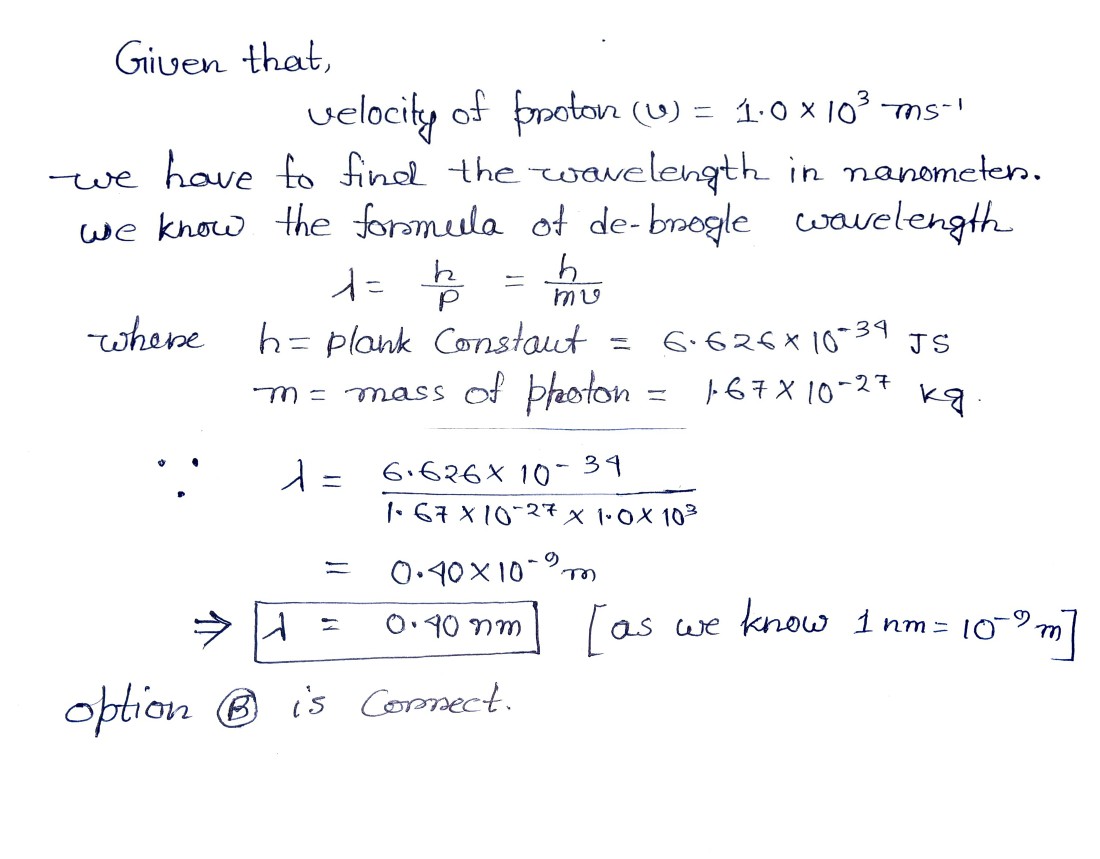 Given that,
velocity of proton (v) = 1.0 × 10³ ms⁻¹
we have to find the wavelength in nanometer.
we know the formula of de-brogle wavelength
λ = h/p = h/mv
where h = plank Constant = 6.626 × 10⁻³⁴ JS
m = mass of photon = 1.67 × 10⁻²⁷ kg.
∵ λ = 6.626 × 10⁻³⁴ / 1.67 × 10⁻²⁷ × 1.0 × 10³
= 0.40 × 10⁻⁹ m
⇒ λ = 0.40 nm [as we know 1 nm = 10⁻⁹ m]
option Ⓑ is Correct.